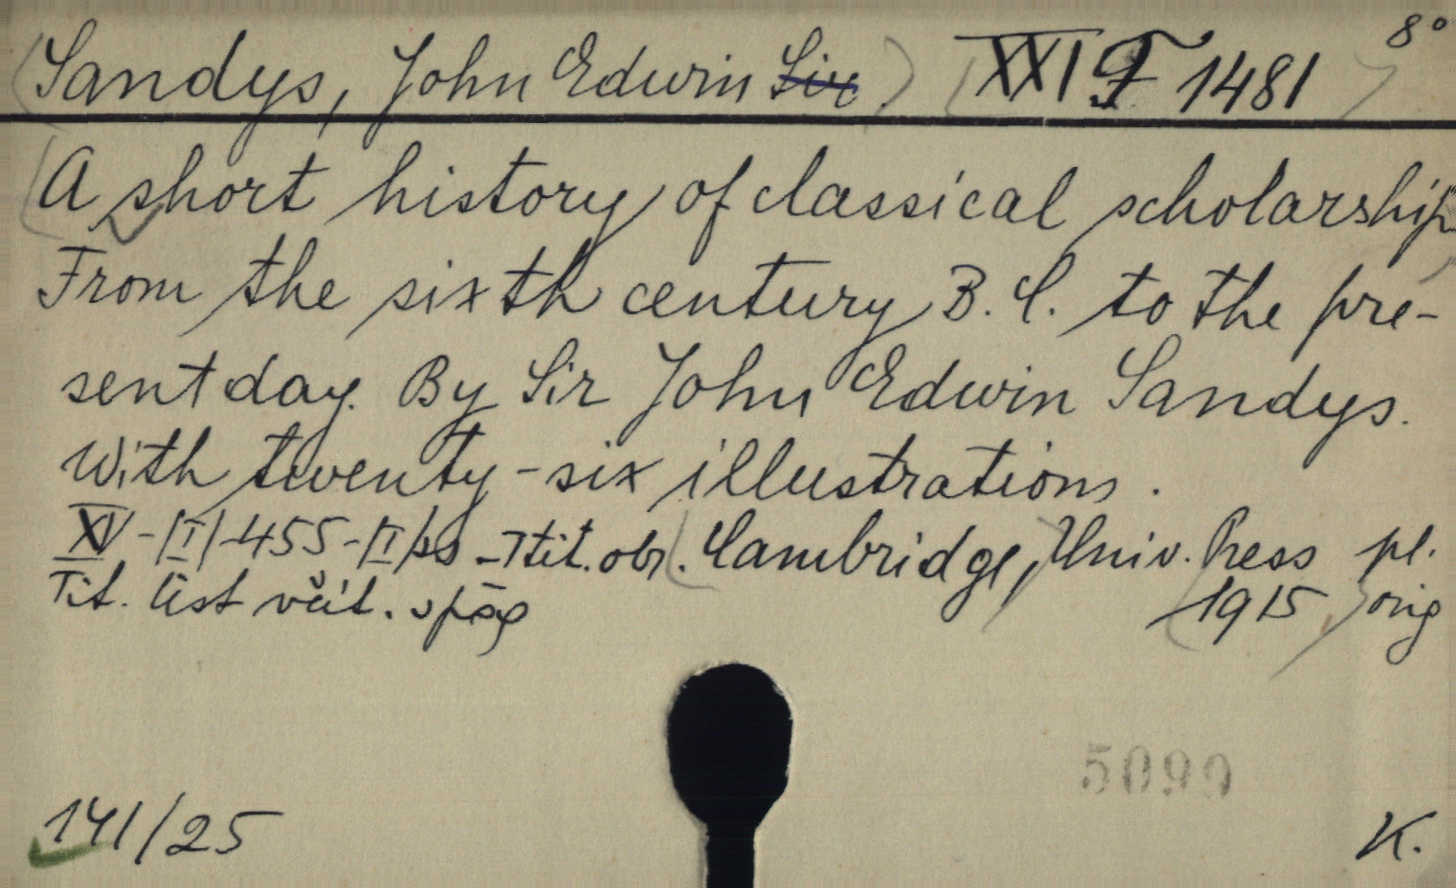 Sandys, John Edwin Sir XXI F 1481 8°
A short history of classical scholarship
From the sixth century B.C. to the pre-
sent day. By Sir John Edwin Sandys.
With twenty-six illustrations.
XV-|I|-455-|I| ss - 1 tit. obr. Cambridge, Univ. Press pl.
Tit. list včit. v pag 1915 orig
5090
141/25 K.